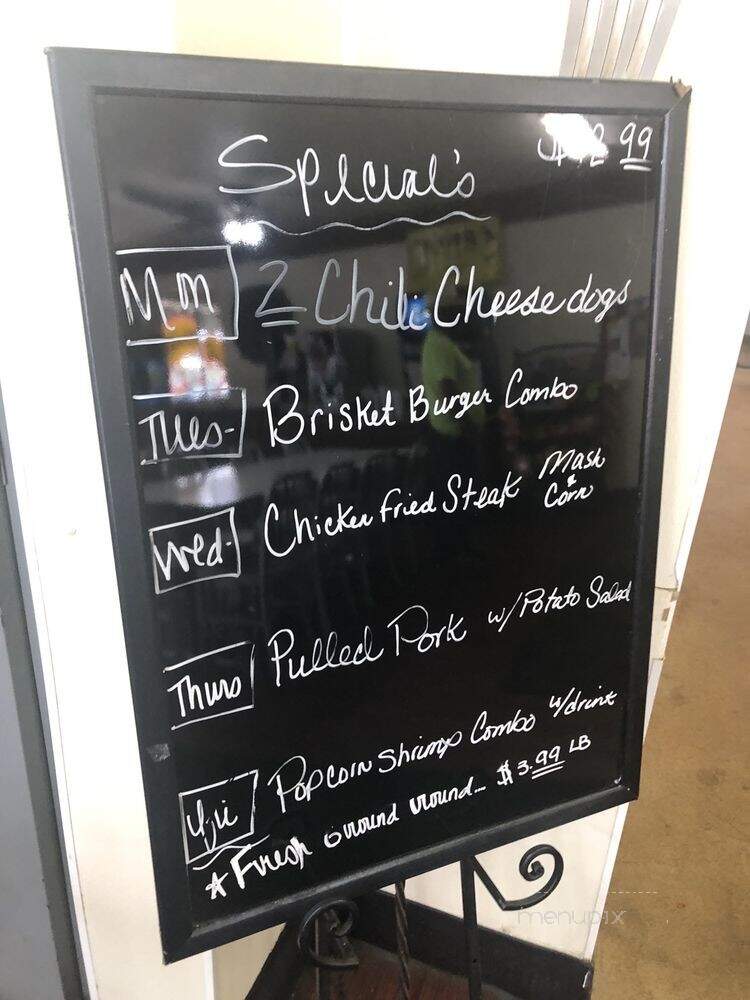 Special's
99
Mm 2 Chili Cheese dogs
Tues- Brisket Burger Combo
Wed- Chicken Fried Steak Mash & Corn
Thurs Pulled Pork w/Potato Salad
Fri Popcorn Shrimp Combo w/drink
* Fresh Ground round... $3.99 LB
menupix